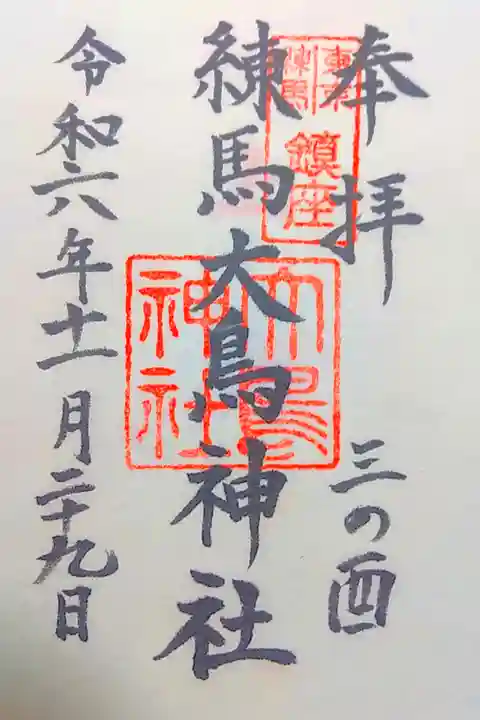 奉拝
三の酉
東京練馬鎮座
練馬大鳥神社
大鳥神社
令和六年十一月二十九日